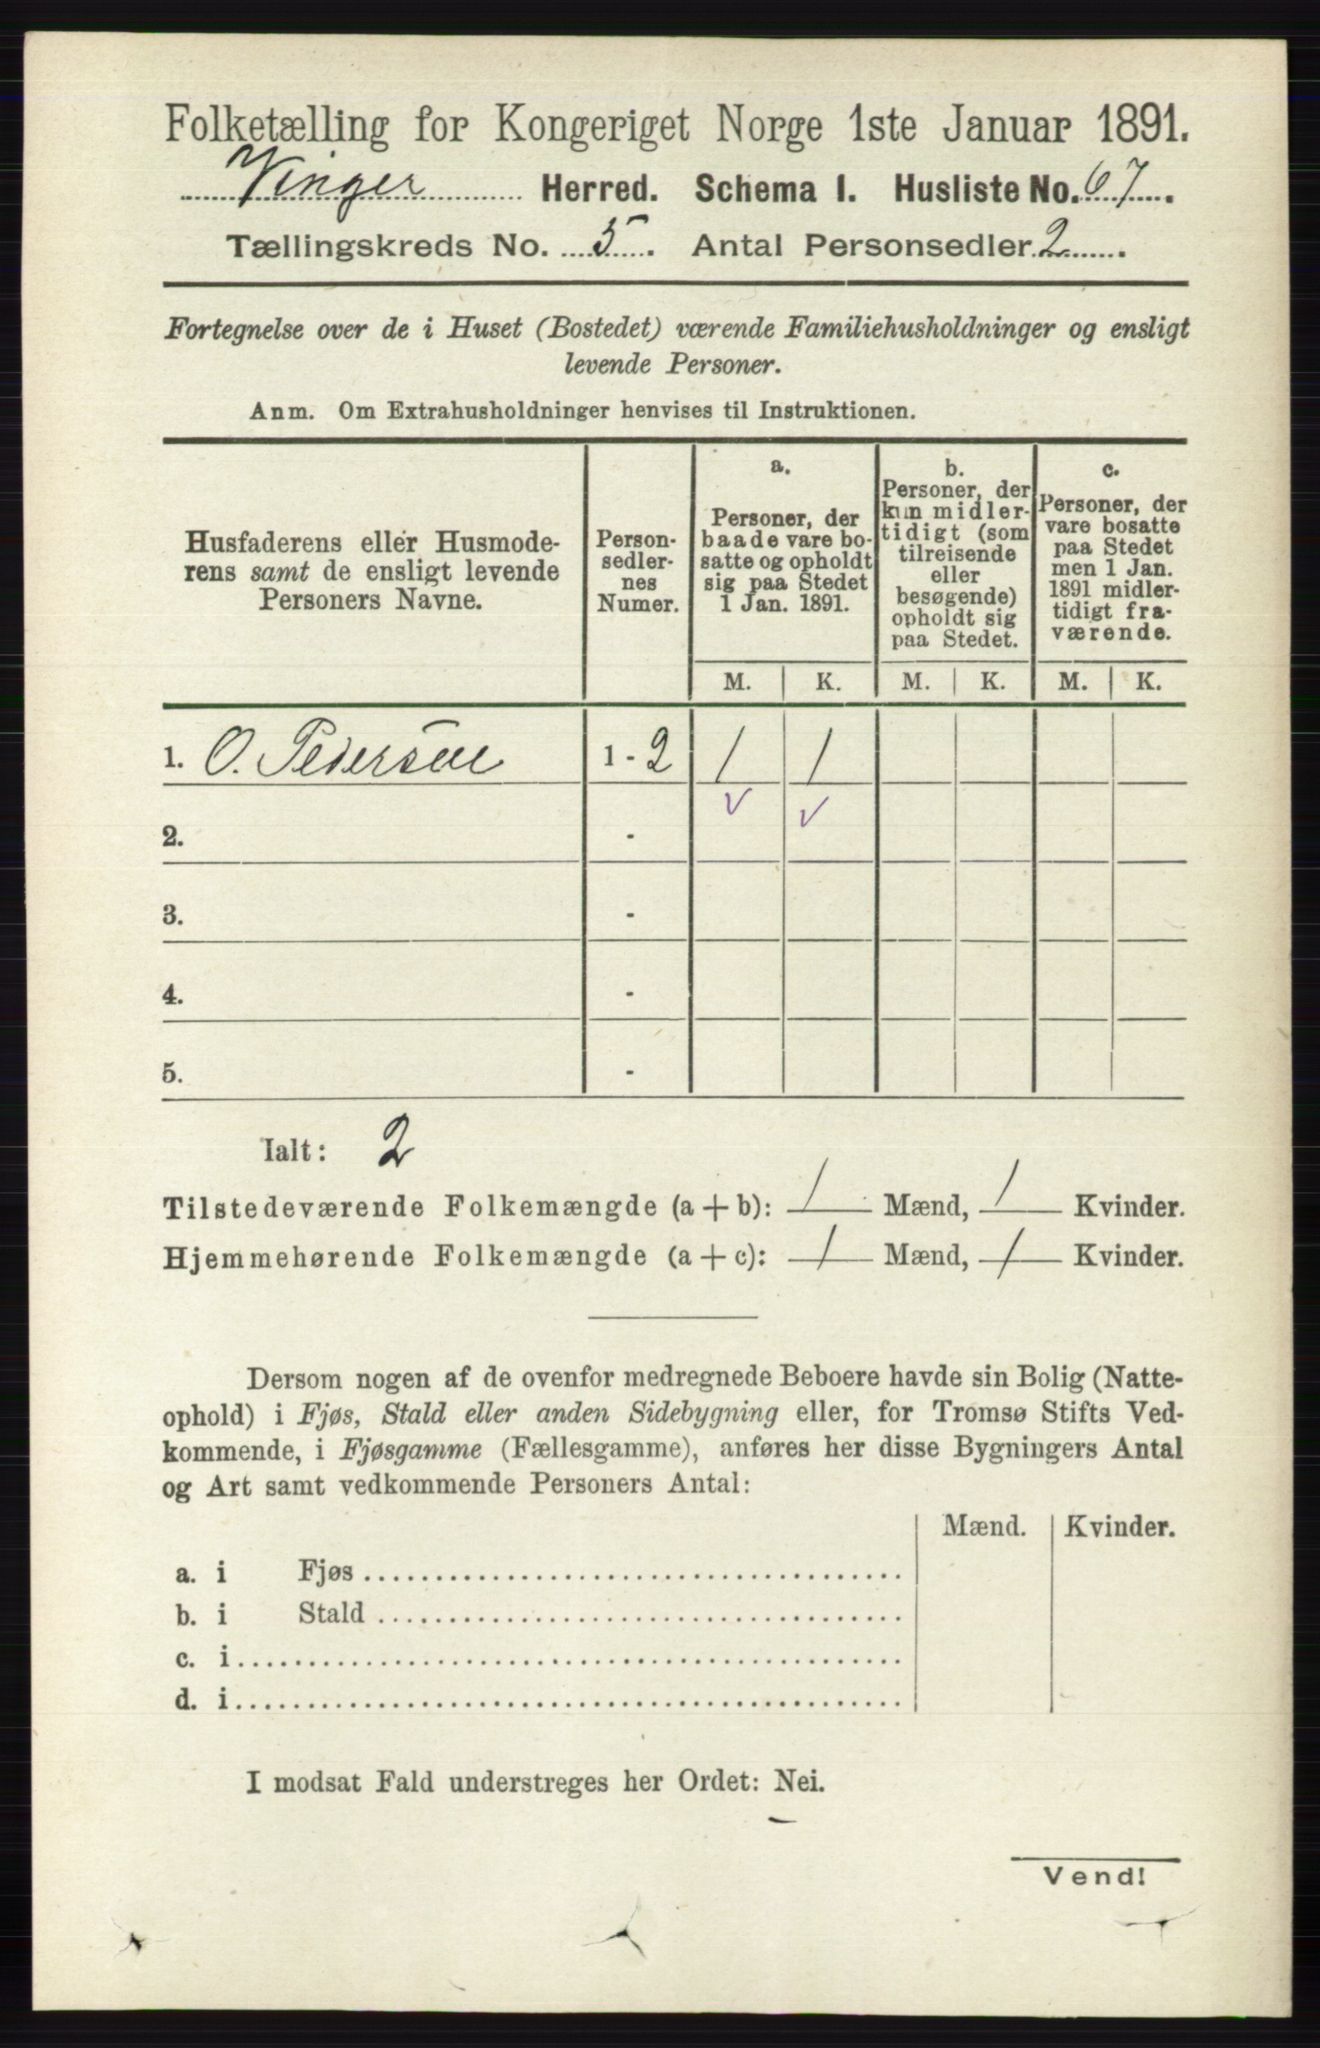 Folketælling for Kongeriget Norge 1ste Januar 1891.
Vinger Herred. Schema I. Husliste No. 67.
Tællingskreds No. 5. Antal Personsedler 2.
Fortegnelse over de i Huset (Bostedet) værende Familiehusholdninger og ensligt
levende Personer.
Anm. Om Extrahusholdninger henvises til Instruktionen.
Husfaderens eller Husmode-
rens samt de ensligt levende
Personers Navne.
Person-
sedler-
nes
Numer.
a.
Personer, der
baade vare bo-
satte og opholdt
sig paa Stedet
1 Jan. 1891.
b.
Personer, der
kun midler-
tidigt (som
tilreisende
eller
besøgende)
opholdt sig
paa Stedet.
c.
Personer, der
vare bosatte
paa Stedet
men 1 Jan.
1891 midler-
tidigt fra-
værende.
M. K. M. K. M. K.
1. O. Pedersen 1 - 2 1 1
2. -
3. -
4. -
5. -
Ialt: 2
Tilstedeværende Folkemængde (a + b): 1 Mænd, 1 Kvinder.
Hjemmehørende Folkemængde (a + c): 1 Mænd, 1 Kvinder.
Dersom nogen af de ovenfor medregnede Beboere havde sin Bolig (Natte-
ophold) i Fjøs, Stald eller anden Sidebygning eller, for Tromsø Stifts Ved-
kommende, i Fjøsgamme (Fællesgamme), anføres her disse Bygningers Antal
og Art samt vedkommende Personers Antal:
Mænd. Kvinder.
a. i Fjøs
b. i Stald
c. i
d. i
I modsat Fald understreges her Ordet: Nei.
Vend!